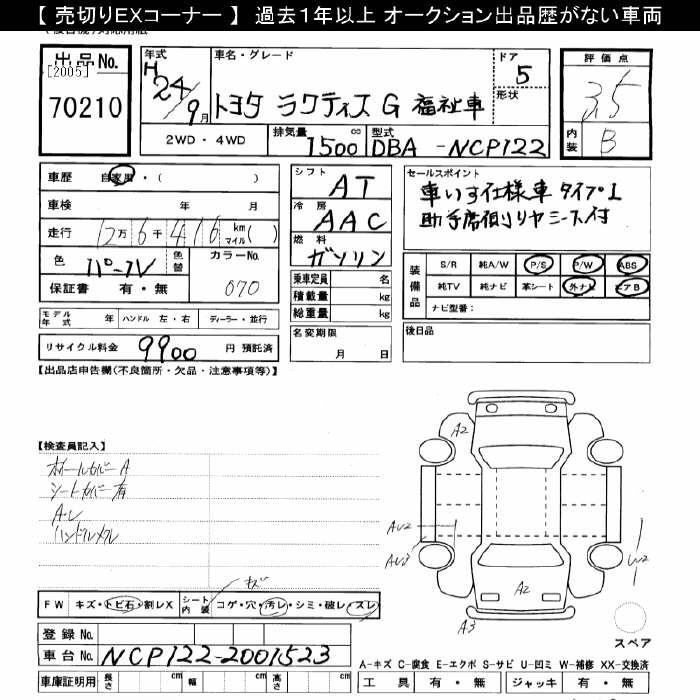 【 売切りEXコーナー 】 過去１年以上 オークション出品歴がない車両
出品No.
[2005]
70210
年式
H 24/9月
車名・グレード
トヨタ ラクティス G 福祉車
ドア
5
形状
評価点
3.5
内装
B
2WD・4WD
排気量
1500 cc
型式
DBA -NCP122
車歴 自家用・( )
車検 年 月
走行 12万6千416 km マイル( )
色 パープル 色替
カラーNo. 070
保証書 有・無
シフト AT
冷房 AAC
燃料 ガソリン
乗車定員 名
積載量 kg
総重量 kg
セールスポイント
車いす仕様車 タイプ1
助手席側リヤシート付
装備品
S/R 純A/W P/S P/W ABS
純TV 純ナビ 革シート 外ナビ エアB
ナビ型番：
モデル年式 年 ハンドル 左・右 ディーラー・並行
リサイクル料金 9900 円 預託済
名変期限 月 日
後日品
【出品店申告欄(不良箇所・欠品・注意事項等)】
【検査員記入】
ホイールカバーA
シートカバー有
A・レ
ハンドルスレ
A2
AU2
AU3
W2
A2
A3
スペア
FW キズ・トビ石・割レX シート内装 コゲ・穴・汚レ・シミ・破レ・スレ
キズ
登録No.
車台No. NCP122-2001523
A-キズ C-腐食 E-エクボ S-サビ U-凹ミ W-補修 XX-交換済
車庫証明用 長さ cm 幅 cm 高さ cm
工具 有・無 ジャッキ 有・無